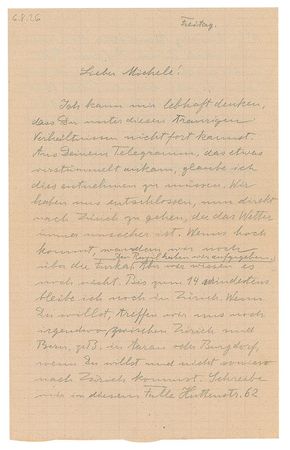 6.8.26
Freitag.
Lieber Michele!
Ich kann mir lebhaft denken,
dass Du unter diesen traurigen
Verhältnissen nicht fort kannst.
Aus Deinem Telegramm, das etwas
verstümmelt ankam, glaube ich
dies entnehmen zu müssen. Wir
haben uns entschlossen, nun direkt
nach Zürich zu gehen, da das Wetter
immer unsicher ist. Wenns hoch
kommt, wandern wir noch
haben wir aufgegeben.
über die Furka. Aber wir wissen es
noch nicht. Bis zum 14 mindestens
bleibe ich noch in Zürich. Wenn
Du willst, treffen wir uns noch
irgendwo zwischen Zürich und
Bern, z.B. in Aarau oder Burgdorf,
wenn Du willst und nicht sowieso
nach Zürich kommst. Schreibe
mir in diesem Falle Huttenstr. 62